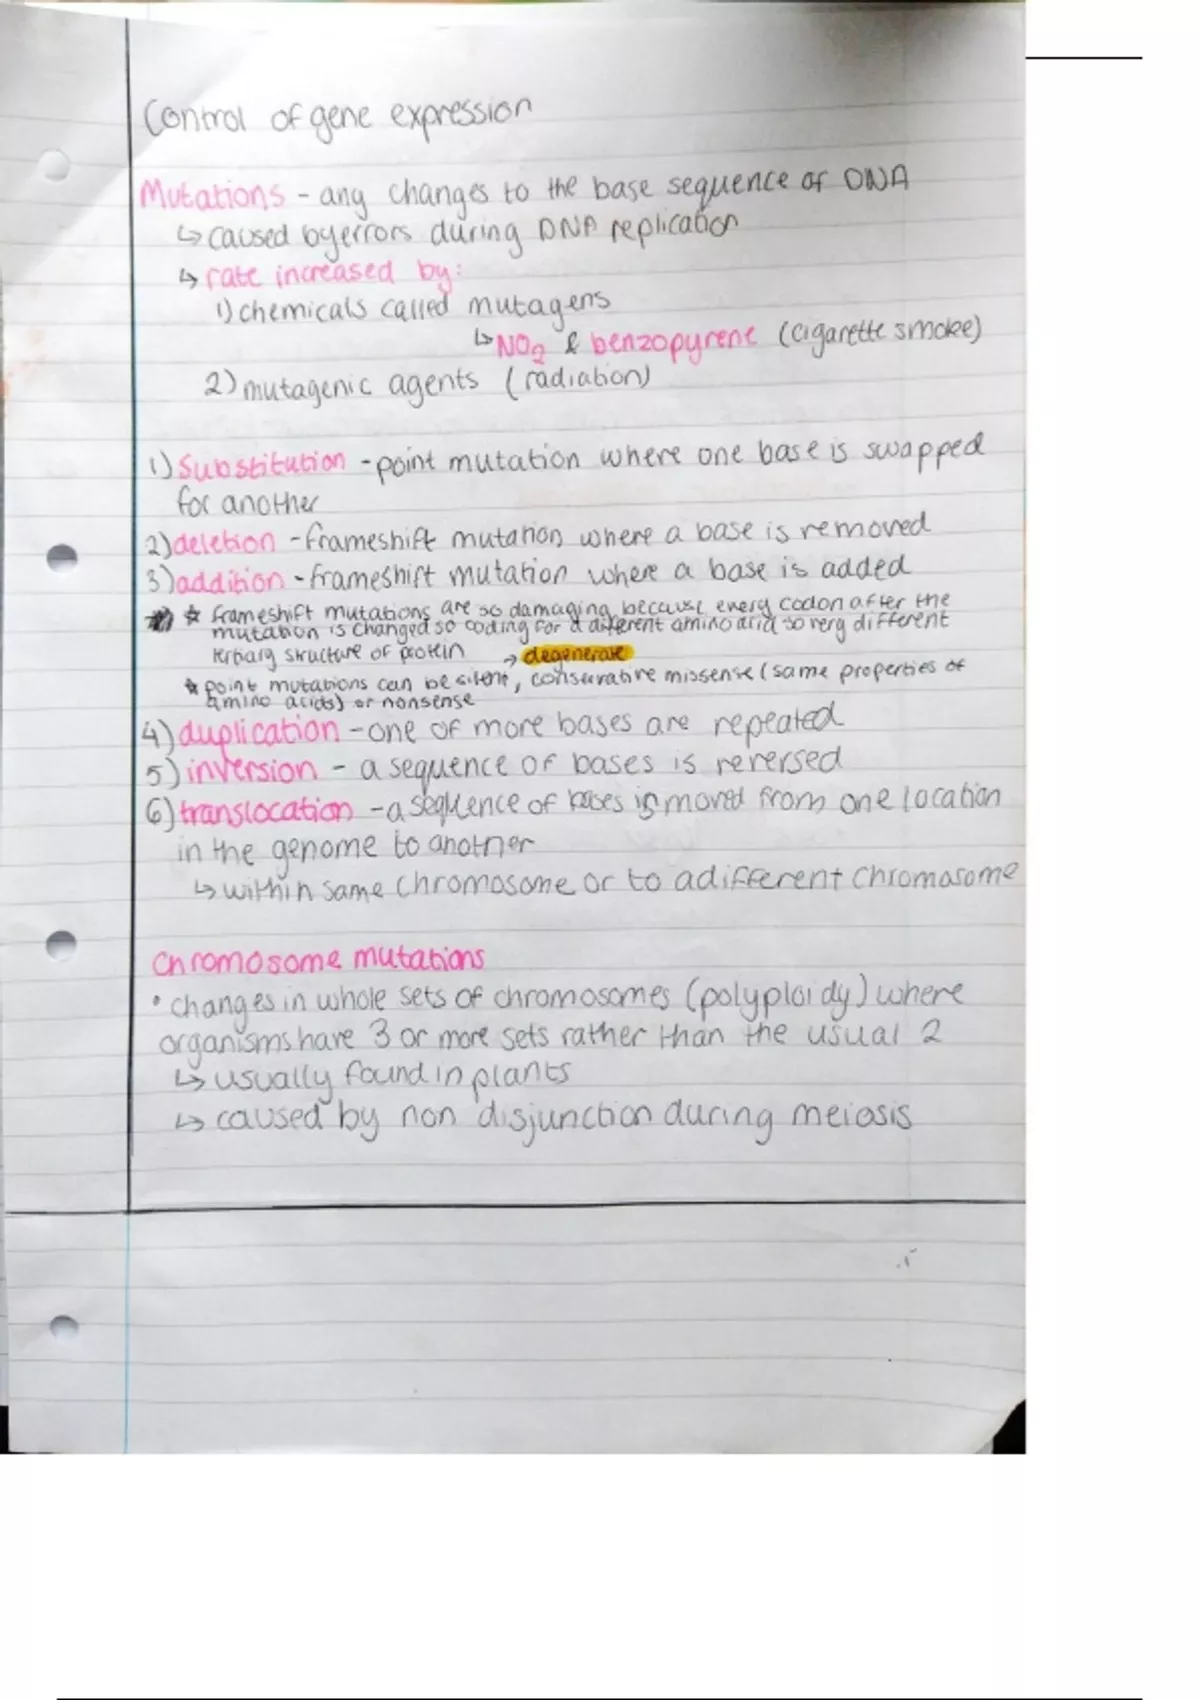 Control of gene expression
Mutations - any changes to the base sequence of DNA
↳ caused by errors during DNA replication
↳ rate increased by:
1) chemicals called mutagens
↳ NO2 & benzopyrene (cigarette smoke)
2) mutagenic agents (radiation)
1) Substitution - point mutation where one base is swapped
for another
2) deletion - frameshift mutation where a base is removed
3) addition - frameshift mutation where a base is added
☆ frameshift mutations are so damaging because every codon after the
mutation is changed so coding for a different amino acid so very different
tertiary structure of protein → degenerate
☆ point mutations can be silent, conservative missense (same properties of
amino acids) or nonsense
4) duplication - one of more bases are repeated
5) inversion - a sequence of bases is reversed
6) translocation - a sequence of bases is moved from one location
in the genome to another
↳ within same chromosome or to a different chromasome
Chromosome mutations
• changes in whole sets of chromosomes (polyploidy) where
organisms have 3 or more sets rather than the usual 2
↳ usually found in plants
↳ caused by non disjunction during meiosis